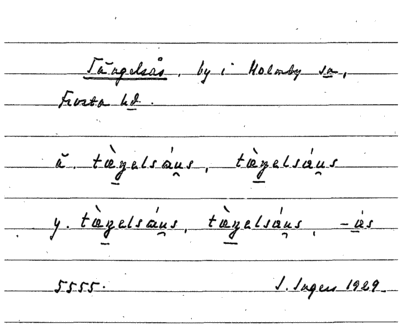 Tängelsås, by i Holmby sn,
Frosta hd.
ä. tæ̀ŋelsáu̯s, tæ̀ŋelsáu̯s
y. tæ̀ŋelsáu̯s, tæ̀ŋelsáu̯s, -ás
5555. I. Ingers 1929.